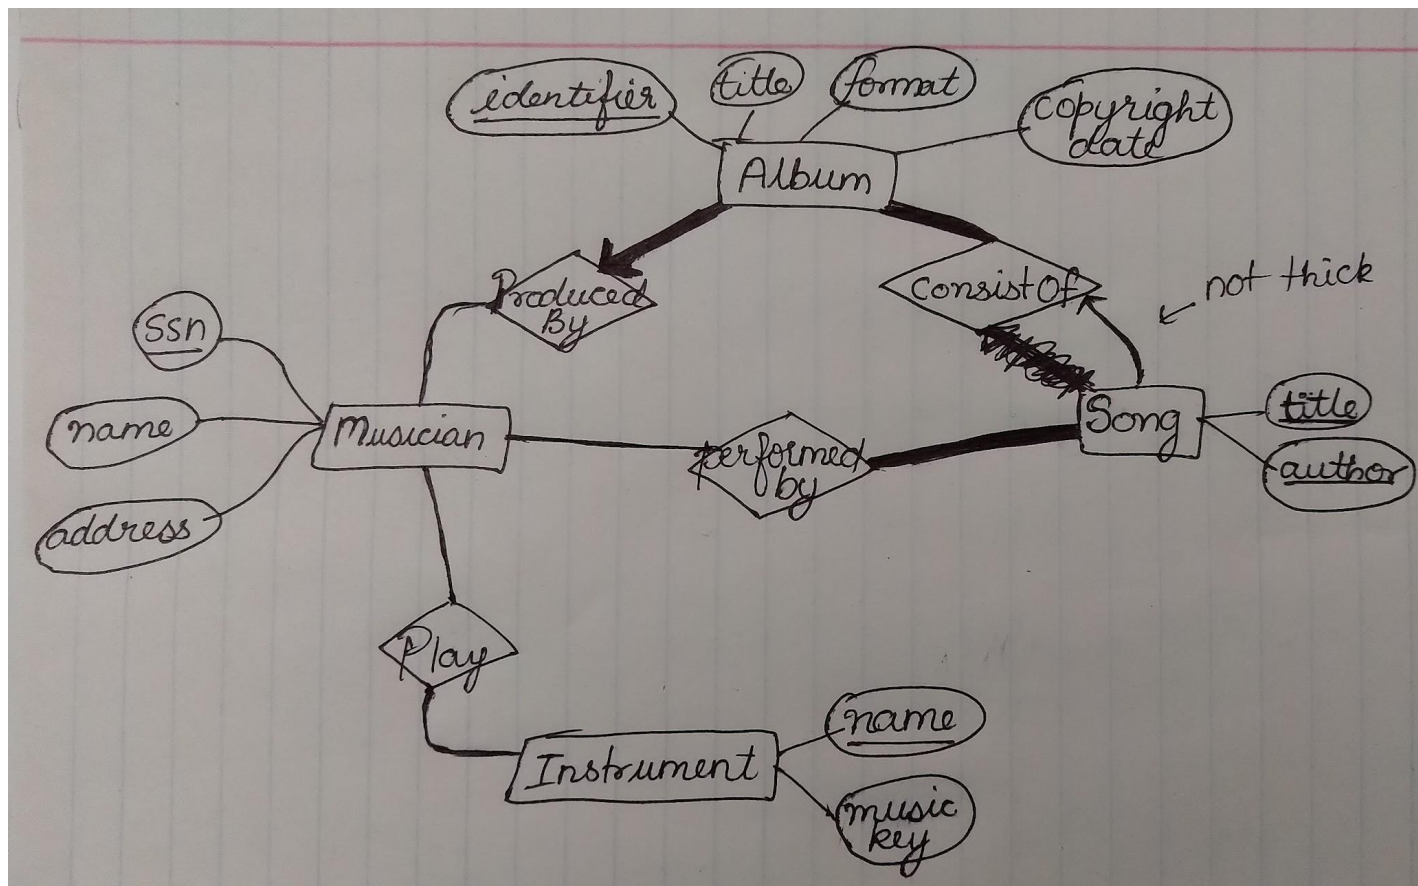 identifier
title
format
copyright
date
Album
Produced
By
ConsistOf
not thick
ssn
name
address
Musician
performed
by
Song
title
author
Play
Instrument
name
music
key